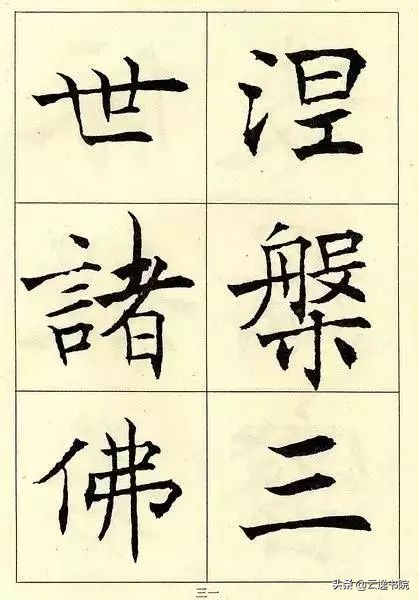 涅槃三
世諸佛
三一
头条 @云逸书院